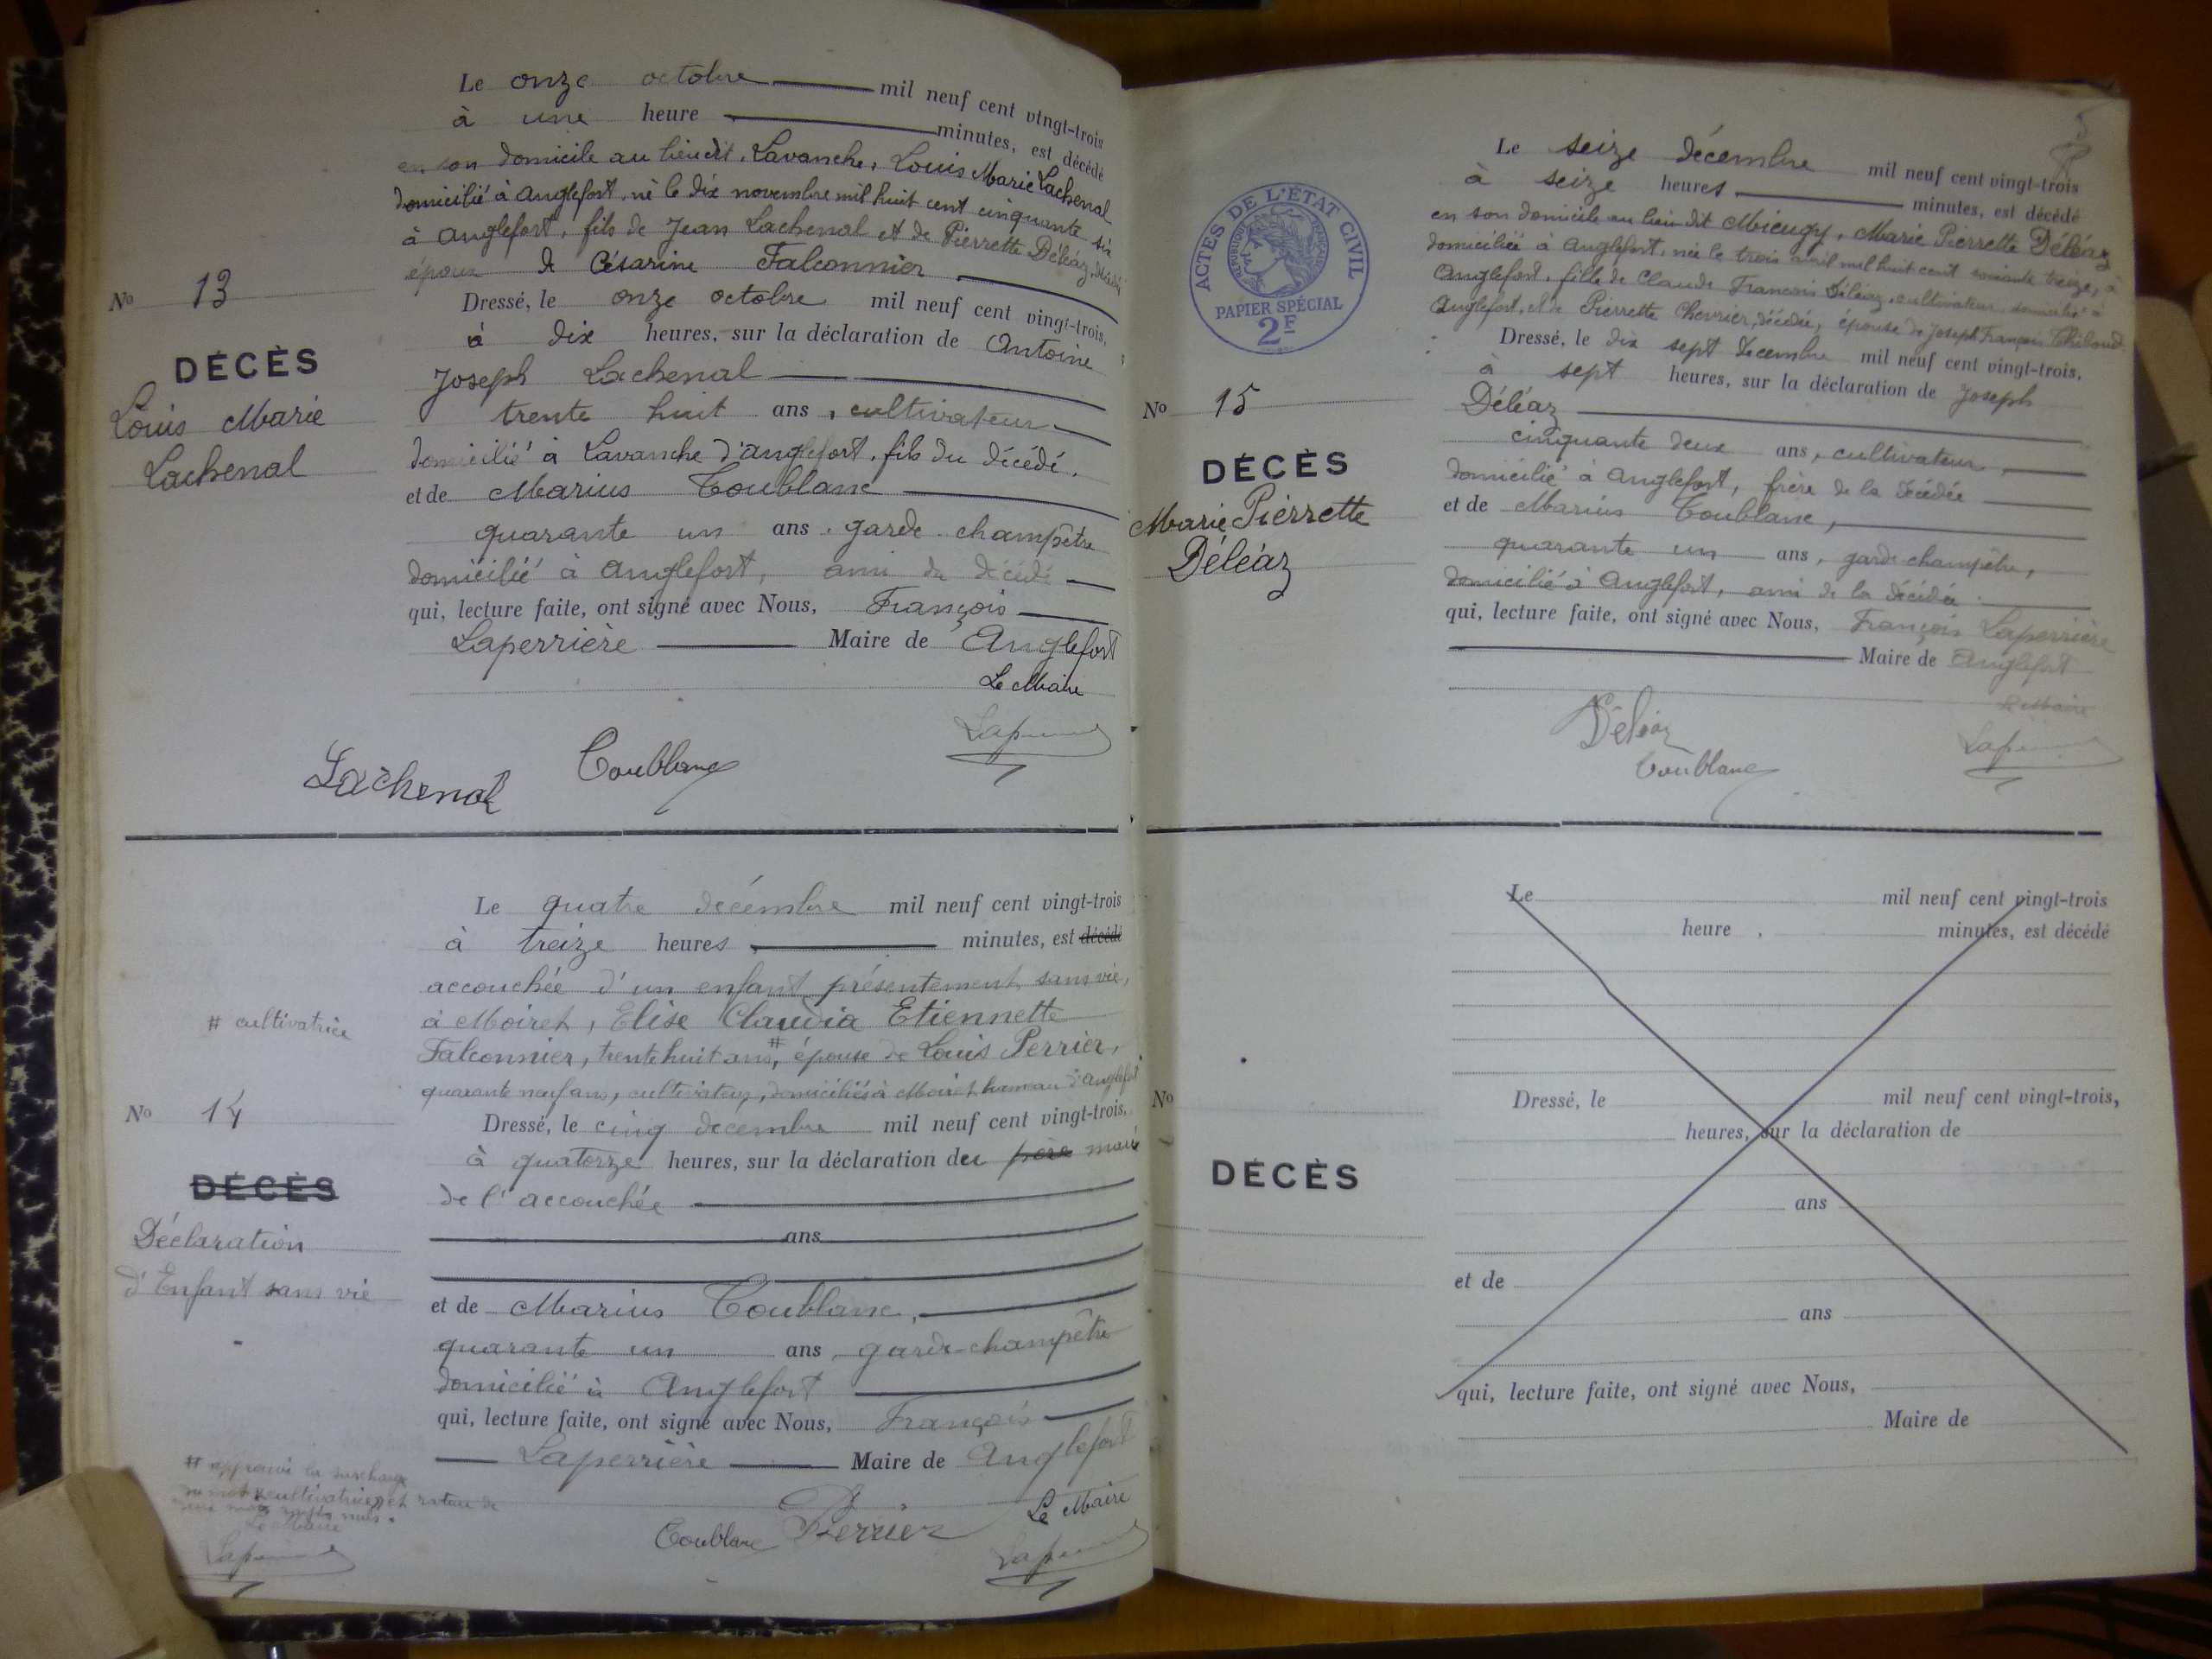 Le onze octobre mil neuf cent vingt-trois
à une heure minutes, est décédé
en son domicile au lieudit, Lavanche, Louis Marie Lachenal
domicilié à Anglefort, né le dix novembre mil huit cent cinquante six
à Anglefort, fils de Jean Lachenal et de Pierrette Déléaz,
époux de Césarine Falconnier
Nº 13
DÉCÈS
Louis Marie
Lachenal
Dressé, le onze octobre mil neuf cent vingt-trois,
à dix heures, sur la déclaration de Antoine
Joseph Lachenal
trente huit ans, cultivateur
domicilié à Lavanche d'Anglefort, fils du décédé,
et de Marius Toublanc
quarante un ans, garde champêtre
domicilié à Anglefort, ami du décédé
qui, lecture faite, ont signé avec Nous, François
Laperrière Maire de Anglefort
Le Maire
Lachenal Toublanc
Le quatre décembre mil neuf cent vingt-trois
à treize heures minutes, est décédé
accouchée d'un enfant présentement sans vie,
# cultivatrice
à Moiret, Elise Claudia Etiennette
Falconnier, trente huit ans #, épouse de Louis Perrier,
quarante neuf ans, cultivateur, domiciliés à Moiret hameau d'Anglefort
Nº 14
DÉCÈS
Déclaration
d'Enfant sans vie
Dressé, le cinq décembre mil neuf cent vingt-trois,
à quatorze heures, sur la déclaration du père mari
de l'accouchée
ans
et de Marius Toublanc,
quarante un ans, garde-champêtre
domicilié à Anglefort
qui, lecture faite, ont signé avec Nous, François
Laperrière Maire de Anglefort
# approuvé la surcharge
Le Maire
Toublanc Perrier
Le Maire
ACTES DE L'ÉTAT CIVIL
RÉPUBLIQUE FRANÇAISE
PAPIER SPÉCIAL
2F
Le seize décembre mil neuf cent vingt-trois
à seize heures minutes, est décédé
en son domicile au lieu dit Mieugy, Marie Pierrette Déléaz
domiciliée à Anglefort, née le trois avril mil huit cent soixante treize, à
Anglefort, fille de Claude François Déléaz, cultivateur, domicilié à
Anglefort, et de Pierrette Chevrier, décédée, épouse de Joseph François Thiboud
Nº 15
DÉCÈS
Marie Pierrette
Déléaz
Dressé, le dix sept décembre mil neuf cent vingt-trois,
à sept heures, sur la déclaration de Joseph
Déléaz
cinquante deux ans, cultivateur,
domicilié à Anglefort, frère de la décédée
et de Marius Toublanc,
quarante un ans, garde-champêtre,
domicilié à Anglefort, ami de la décédée
qui, lecture faite, ont signé avec Nous, François Laperrière
Maire de Anglefort
Le Maire
Déléaz
Toublanc
Le mil neuf cent vingt-trois
heure , minutes, est décédé
Nº
DÉCÈS
Dressé, le mil neuf cent vingt-trois,
heures, sur la déclaration de
ans
et de
ans
qui, lecture faite, ont signé avec Nous,
Maire de